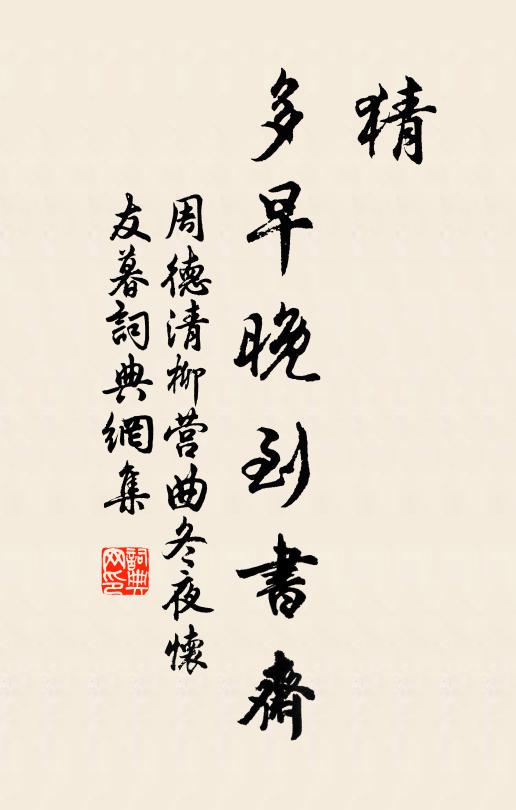 猜
多早晚到書齋
周德清柳营曲冬夜懷
友暮詞典網集
詞典網印